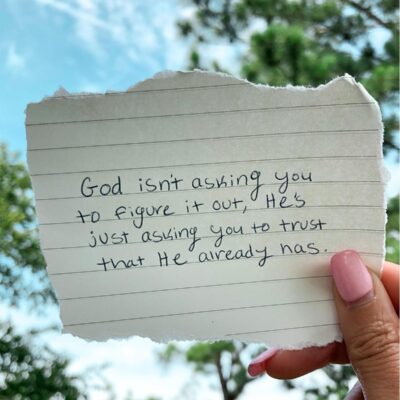 God isn't asking you
to figure it out, He's
just asking you to trust
that He already has.